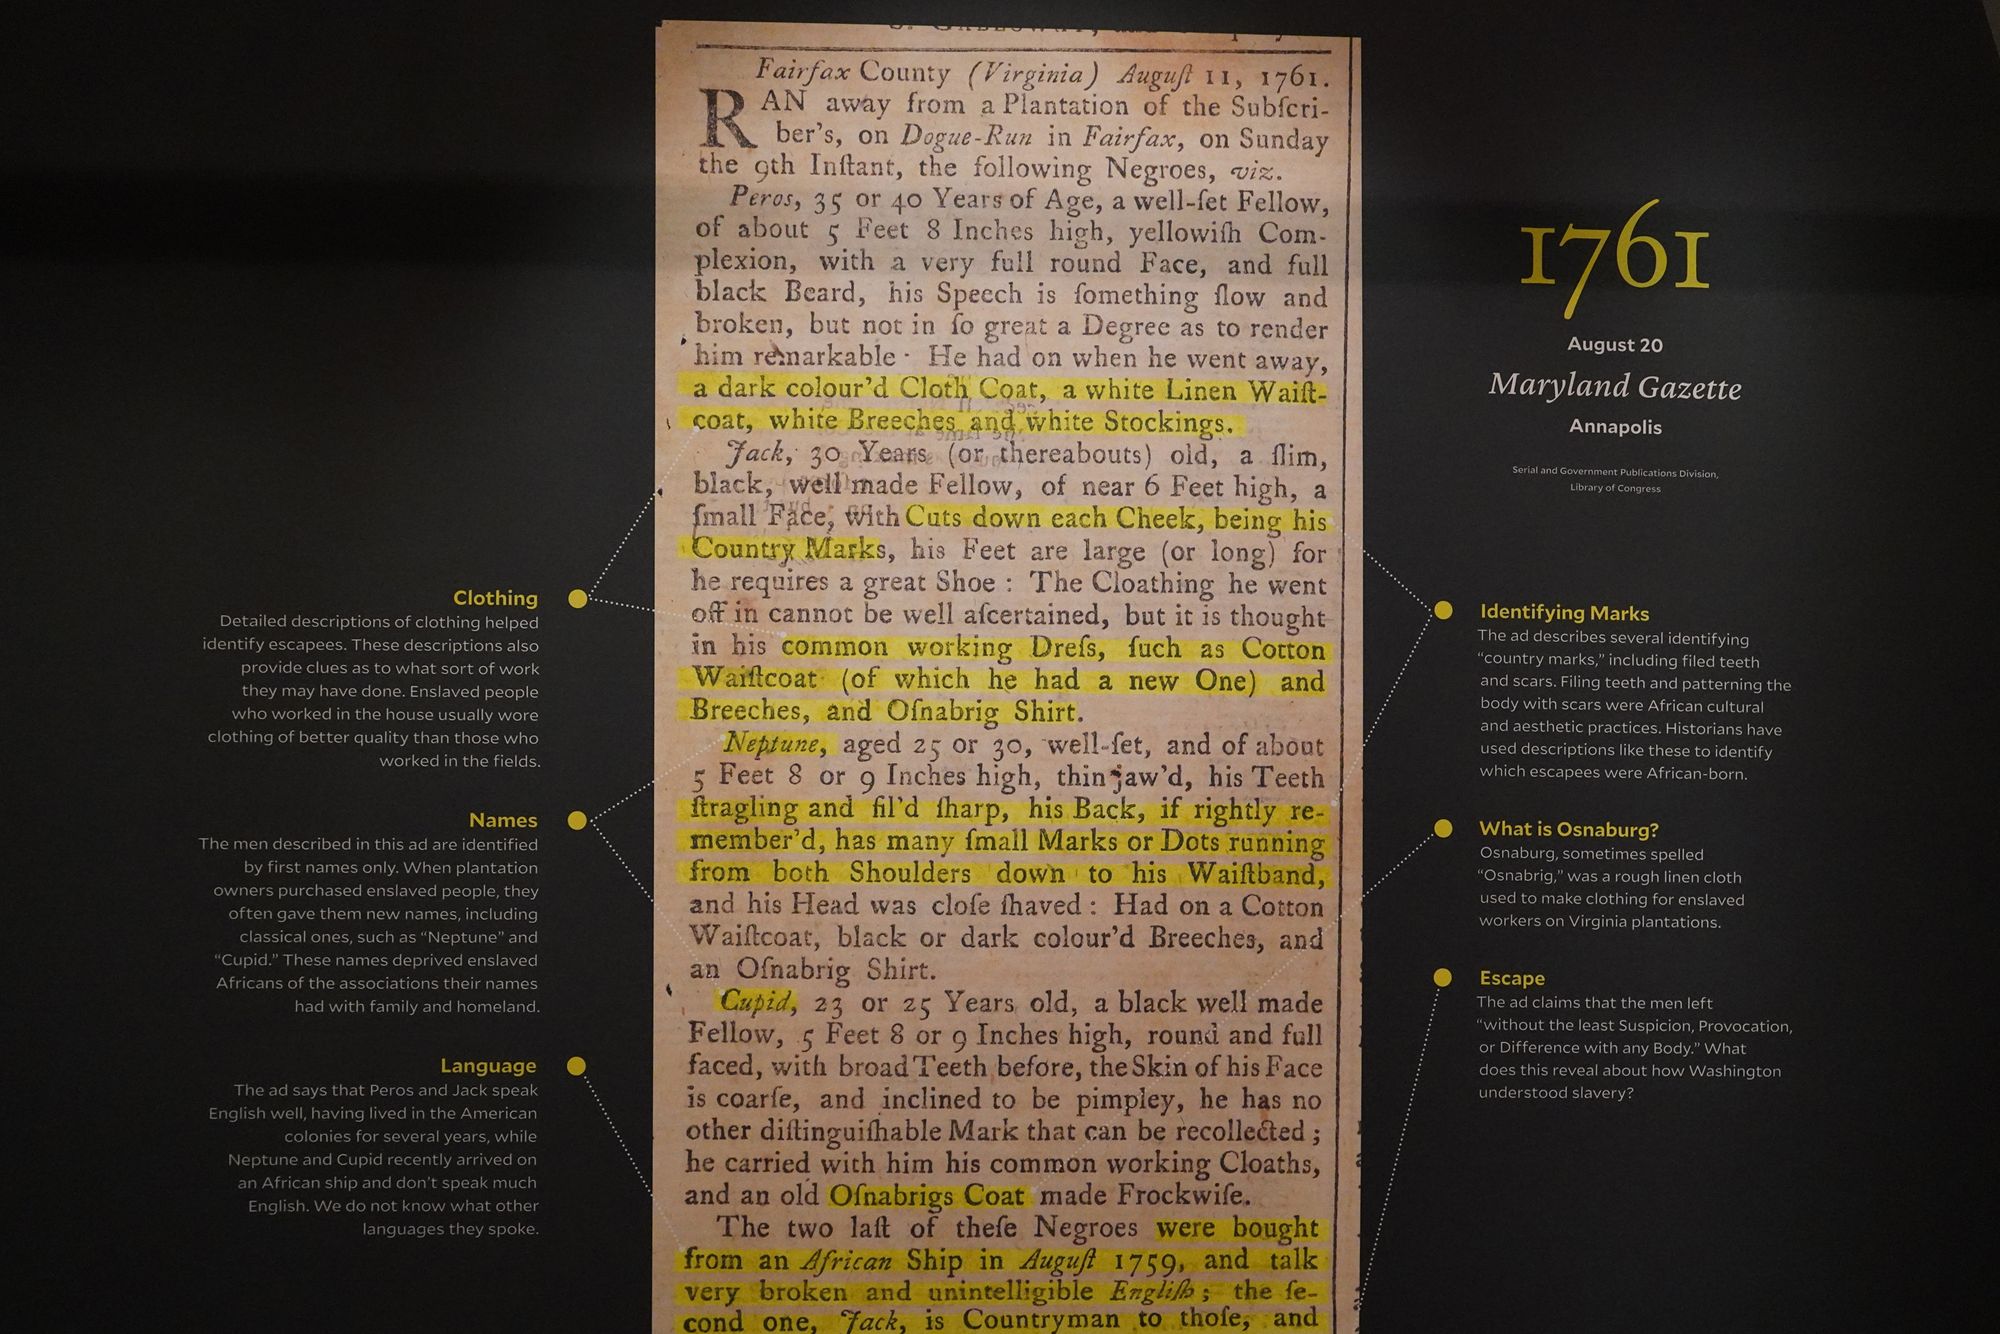 Fairfax County (Virginia) Auguſt 11, 1761.
RAN away from a Plantation of the Subſcri-
ber's, on Dogue-Run in Fairfax, on Sunday
the 9th Inſtant, the following Negroes, viz.
Peros, 35 or 40 Years of Age, a well-ſet Fellow,
of about 5 Feet 8 Inches high, yellowiſh Com-
plexion, with a very full round Face, and full
black Beard, his Speech is ſomething ſlow and
broken, but not in ſo great a Degree as to render
him remarkable · He had on when he went away,
a dark colour'd Cloth Coat, a white Linen Waiſt-
coat, white Breeches and white Stockings.
Jack, 30 Years (or thereabouts) old, a ſlim,
black, well made Fellow, of near 6 Feet high, a
ſmall Face, with Cuts down each Cheek, being his
Country Marks, his Feet are large (or long) for
he requires a great Shoe : The Cloathing he went
off in cannot be well aſcertained, but it is thought
in his common working Dreſs, ſuch as Cotton
Waiſtcoat (of which he had a new One) and
Breeches, and Oſnabrig Shirt.
Neptune, aged 25 or 30, well-ſet, and of about
5 Feet 8 or 9 Inches high, thin jaw'd, his Teeth
ſtragling and fil'd ſharp, his Back, if rightly re-
member'd, has many ſmall Marks or Dots running
from both Shoulders down to his Waiſtband,
and his Head was cloſe ſhaved : Had on a Cotton
Waiſtcoat, black or dark colour'd Breeches, and
an Oſnabrig Shirt.
Cupid, 23 or 25 Years old, a black well made
Fellow, 5 Feet 8 or 9 Inches high, round and full
faced, with broad Teeth before, the Skin of his Face
is coarſe, and inclined to be pimpley, he has no
other diſtinguiſhable Mark that can be recollected ;
he carried with him his common working Cloaths,
and an old Oſnabrigs Coat made Frockwiſe.
The two laſt of theſe Negroes were bought
from an African Ship in Auguſt 1759, and talk
very broken and unintelligible Engliſh ; the ſe-
cond one, Jack, is Countryman to thoſe, and
Clothing
Detailed descriptions of clothing helped
identify escapees. These descriptions also
provide clues as to what sort of work
they may have done. Enslaved people
who worked in the house usually wore
clothing of better quality than those who
worked in the fields.
Names
The men described in this ad are identified
by first names only. When plantation
owners purchased enslaved people, they
often gave them new names, including
classical ones, such as “Neptune” and
“Cupid.” These names deprived enslaved
Africans of the associations their names
had with family and homeland.
Language
The ad says that Peros and Jack speak
English well, having lived in the American
colonies for several years, while
Neptune and Cupid recently arrived on
an African ship and don’t speak much
English. We do not know what other
languages they spoke.
1761
August 20
Maryland Gazette
Annapolis
Serial and Government Publications Division,
Library of Congress
Identifying Marks
The ad describes several identifying
“country marks,” including filed teeth
and scars. Filing teeth and patterning the
body with scars were African cultural
and aesthetic practices. Historians have
used descriptions like these to identify
which escapees were African-born.
What is Osnaburg?
Osnaburg, sometimes spelled
“Osnabrig,” was a rough linen cloth
used to make clothing for enslaved
workers on Virginia plantations.
Escape
The ad claims that the men left
“without the least Suspicion, Provocation,
or Difference with any Body.” What
does this reveal about how Washington
understood slavery?